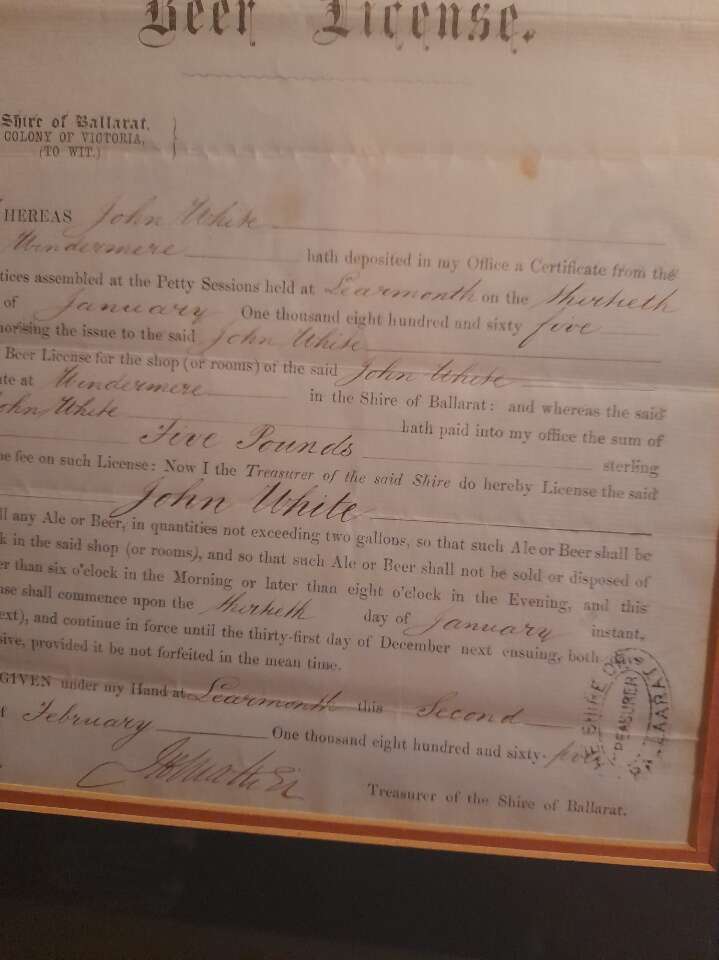 Beer License.
Shire of Ballarat,
COLONY OF VICTORIA,
(TO WIT.)
HEREAS John White
Windermere hath deposited in my Office a Certificate from the
tices assembled at the Petty Sessions held at Learmonth on the thirtieth
of January One thousand eight hundred and sixty five
horising the issue to the said John White
Beer License for the shop (or rooms) of the said John White
ate at Windermere in the Shire of Ballarat: and whereas the said
John White hath paid into my office the sum of
Five Pounds sterling
he fee on such License: Now I the Treasurer of the said Shire do hereby License the said
John White
ll any Ale or Beer, in quantities not exceeding two gallons, so that such Ale or Beer shall be
k in the said shop (or rooms), and so that such Ale or Beer shall not be sold or disposed of
er than six o'clock in the Morning or later than eight o'clock in the Evening, and this
nse shall commence upon the thirtieth day of January instant,
ext), and continue in force until the thirty-first day of December next ensuing, both
sive, provided it be not forfeited in the mean time.
GIVEN under my Hand at Learmonth this Second
f February One thousand eight hundred and sixty-five
Treasurer of the Shire of Ballarat.
THE SHIRE OF BALLARAT
TREASURER